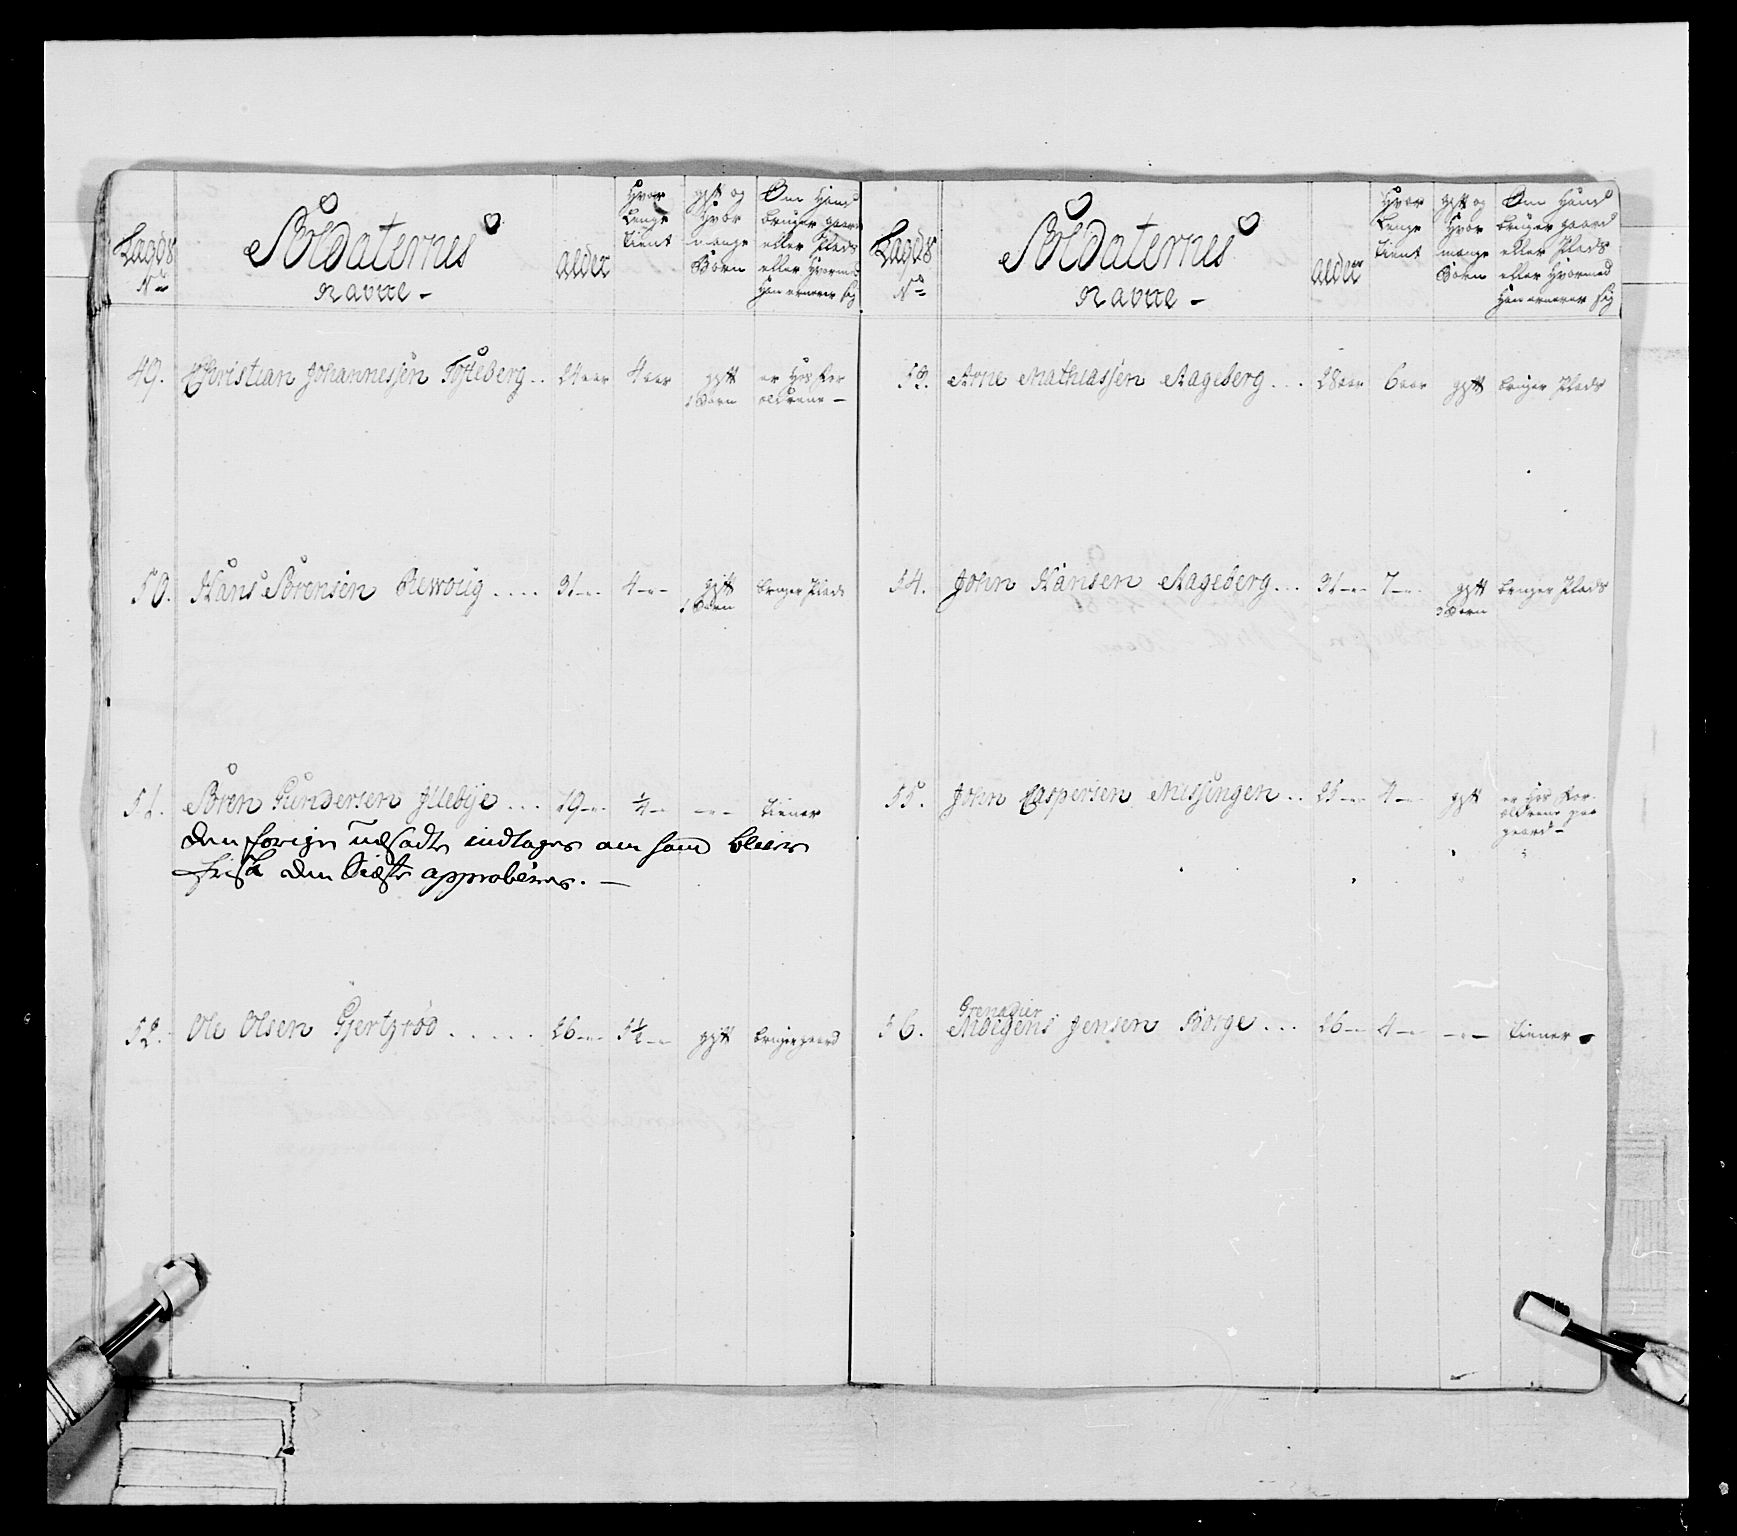 Lægds No
Soldaternes Navne -
alder
Hvor Lenge tient
gift og Hvor mange Børn
Om Hand bruger gaard eller Plads eller Hvormed Han ernerer sig
49. Christian Johannessen Tofteberg .. 24 aar 4 aar gift 1 Barn er Hos For ældrene -
50. Hans Sørensen Rewoug .... 31 -"- 4 -"- gift 1 Barn bruger Plads
51. Søren Gundersen Jllebÿe ... 19 -"- ¼ -"- -"- tiener
den forige udsadte indtages om hand bliver
frisk den Sidste approberes. -
52. Ole Olsen Gjertzrød ..... 26 -"- 5½ -"- gift bruger gaard
Lægds No
Soldaternes Navne -
alder
Hvor Lenge tient
gift og Hvor mange Børn
Om Hand bruger gaard eller Plads eller Hvormed Han ernerer sig
53. Arne Mathiassen Aageberg ... 28 aar 6 aar gift bruger Plads
54. John Hansen Aageberg ... 31 -"- 7 -"- gift 3 Børn bruger Plads
55. John Caspersen Missingen .. 25 -"- 4 -"- gift er Hos For ældrene paa gaard -
Grenadier
56. Mogens Jensen Borge ... 26 -"- 4 -"- -"- tiener -